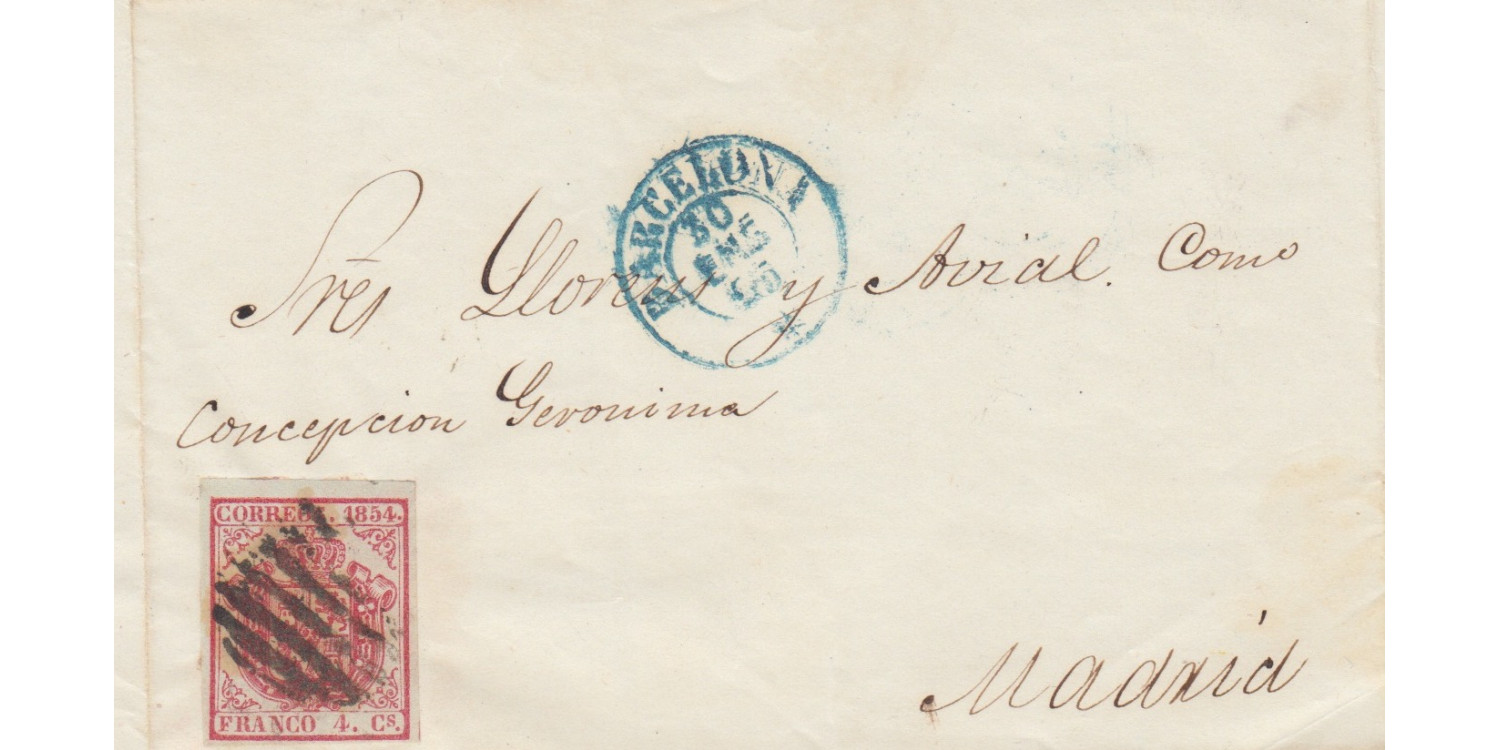 BARCELONA
30
ENE
55
Sres Llorens y Avial. Como
Concepcion Geronima
CORREOS. 1854.
FRANCO 4. Cs.
Madrid